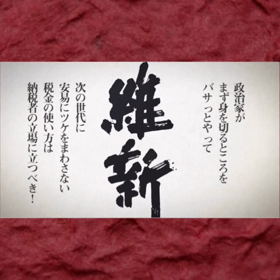 政治家が
まず身を切るところを
バサっとやって
維新
次の世代に
安易にツケをまわさない
税金の使い方は
納税者の立場に立つべき!